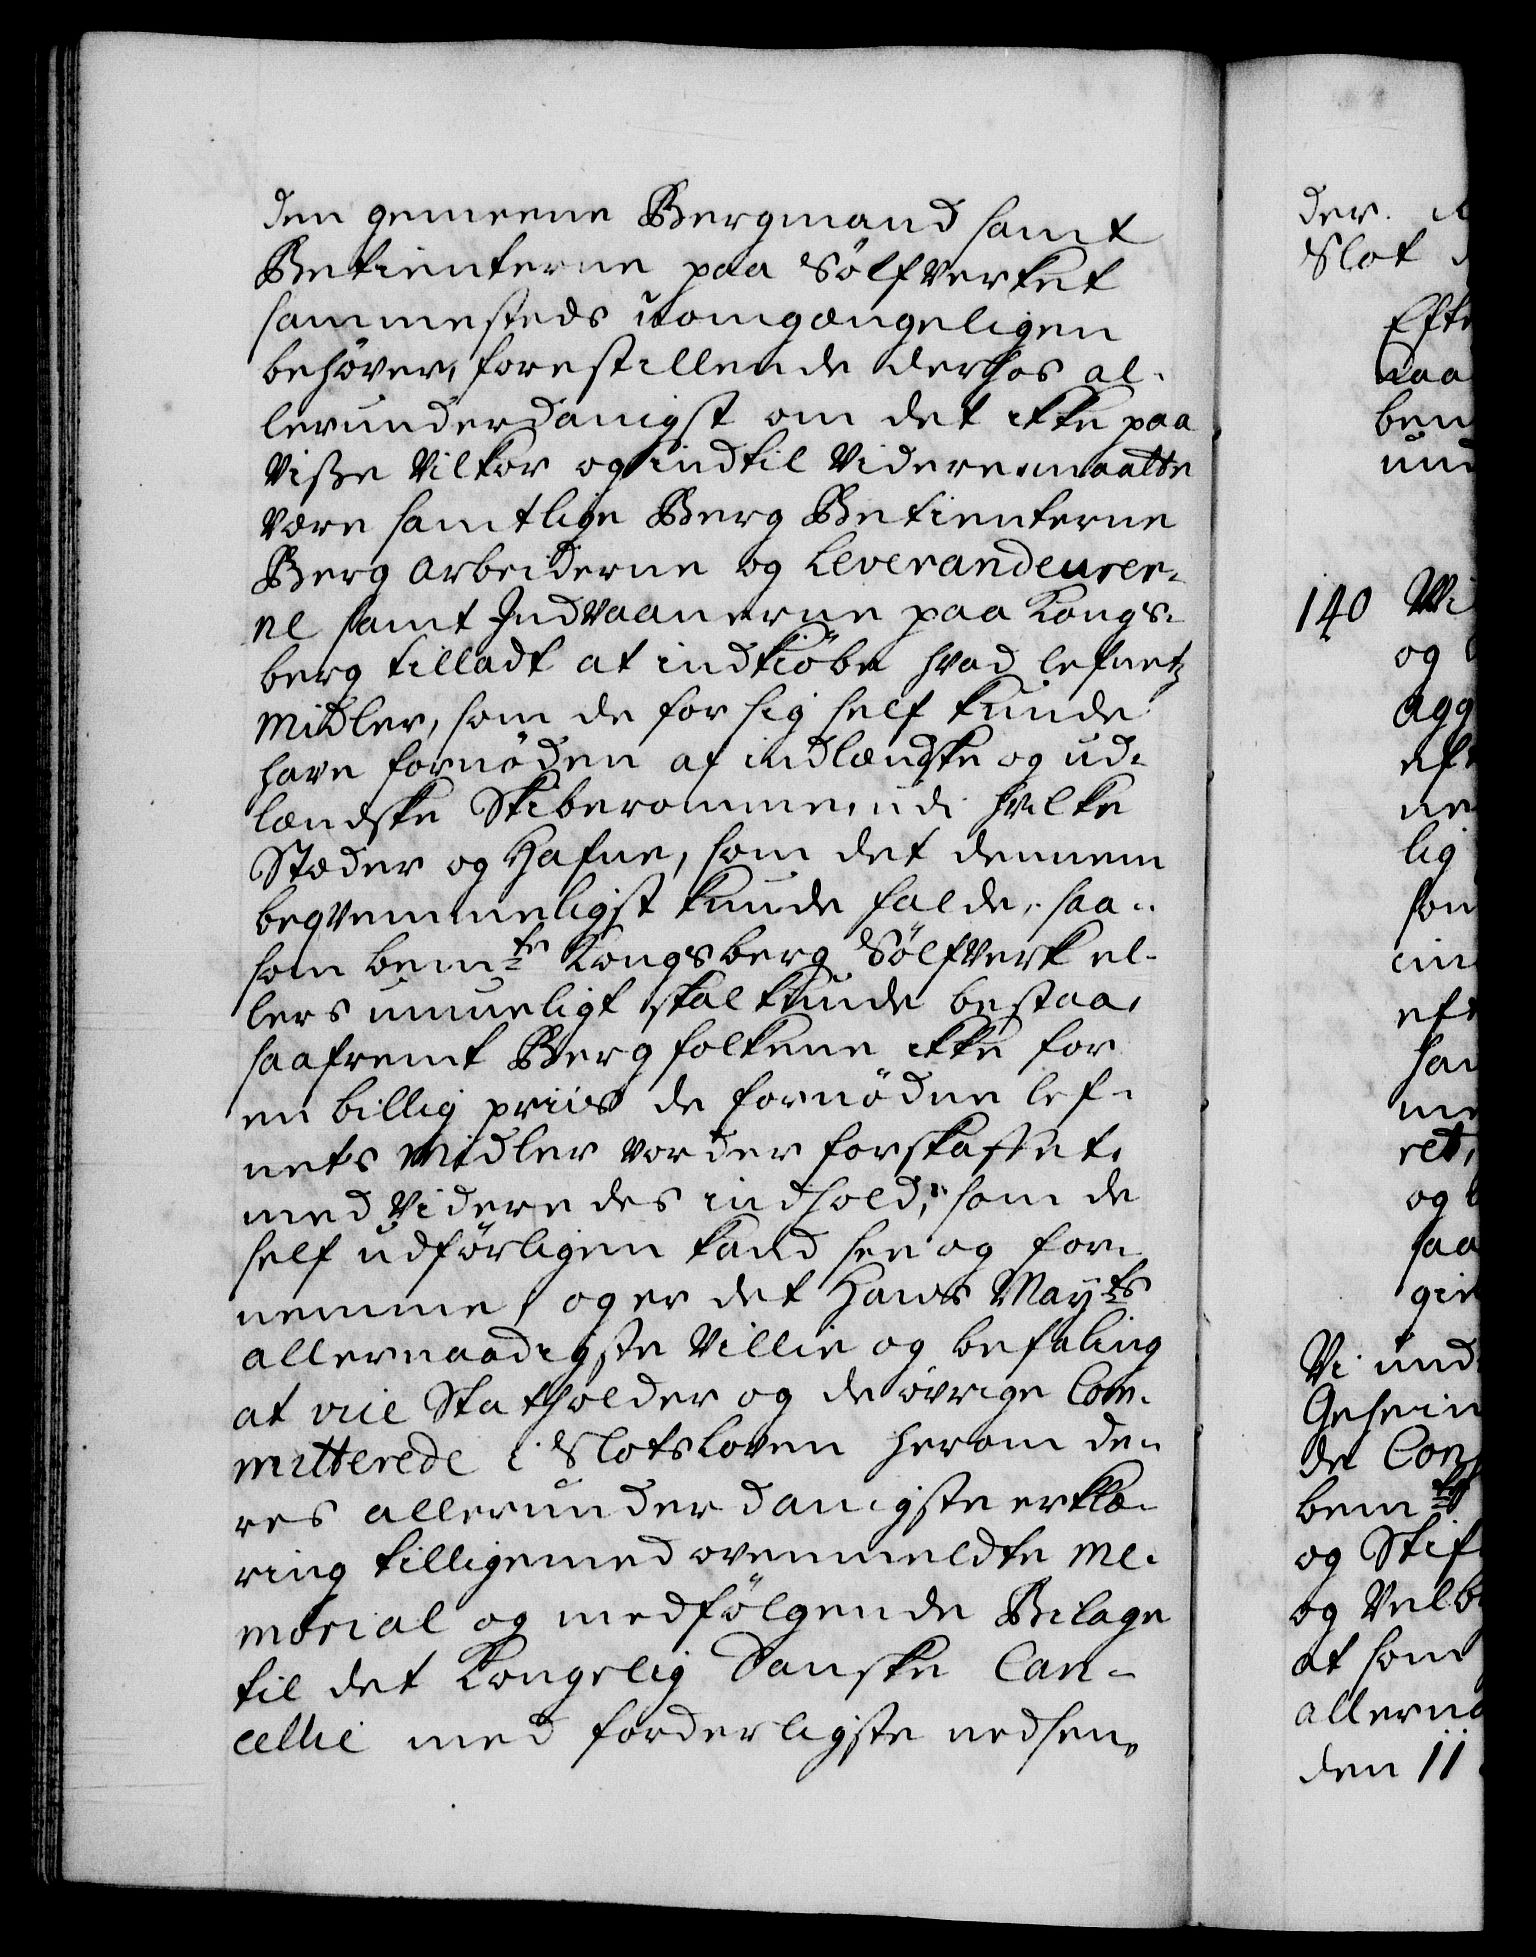 den gemeene Bergmand samt
Betienterne paa Sølfverket
sammesteds uomgængeligen
behøver, forestillende derhos al-
lerunderdanigst om det ikke paa
Visse Vilkor og indtil Videre maatte
være samtlige Berg Betienterne
Berg arbeiderne og Leverandeurer-
ne samt Indvaanerne paa Kongs-
berg tilladt at indkiøbe hvad lefnetz
Midler, som de for sig self kunde
have fornøden af indlændske og ud-
lændske Skiberomme, udi hvilke
Stæder og Hafne, som det dennem
beqvemmeligst kunde falde, saa-
som bemte Kongsberg Sølfverk el-
lers umueligt skal kunde bestaa,
saafremt Berg folkene ikke for
en billig priis de fornødne lef-
nets Midler vorder forskaffet,
med Videre des indhold, som de
self udførligen kand see og for-
nemme, og er det Hans Mayts
allernaadigste Villie og befaling
at vice Statholder og de øvrige Com-
mitterede i Slotsloven herom de-
res allerunderdanigste erklæ-
ring tilligemed ovenmeldte Me-
morial og medfølgende Bilage
til det Kongelig Danske Can-
cellie med forderligste nedsen-
der.
Slot
Efte
naa
ben
und
140 Vi
og
agg
eft
ne
lig
som
ind
eft
han
me
ret,
og b
saa
gie
Vi und
Geheim
de Con
bemte
og Stif
og Velb
at som
allerna
den 11